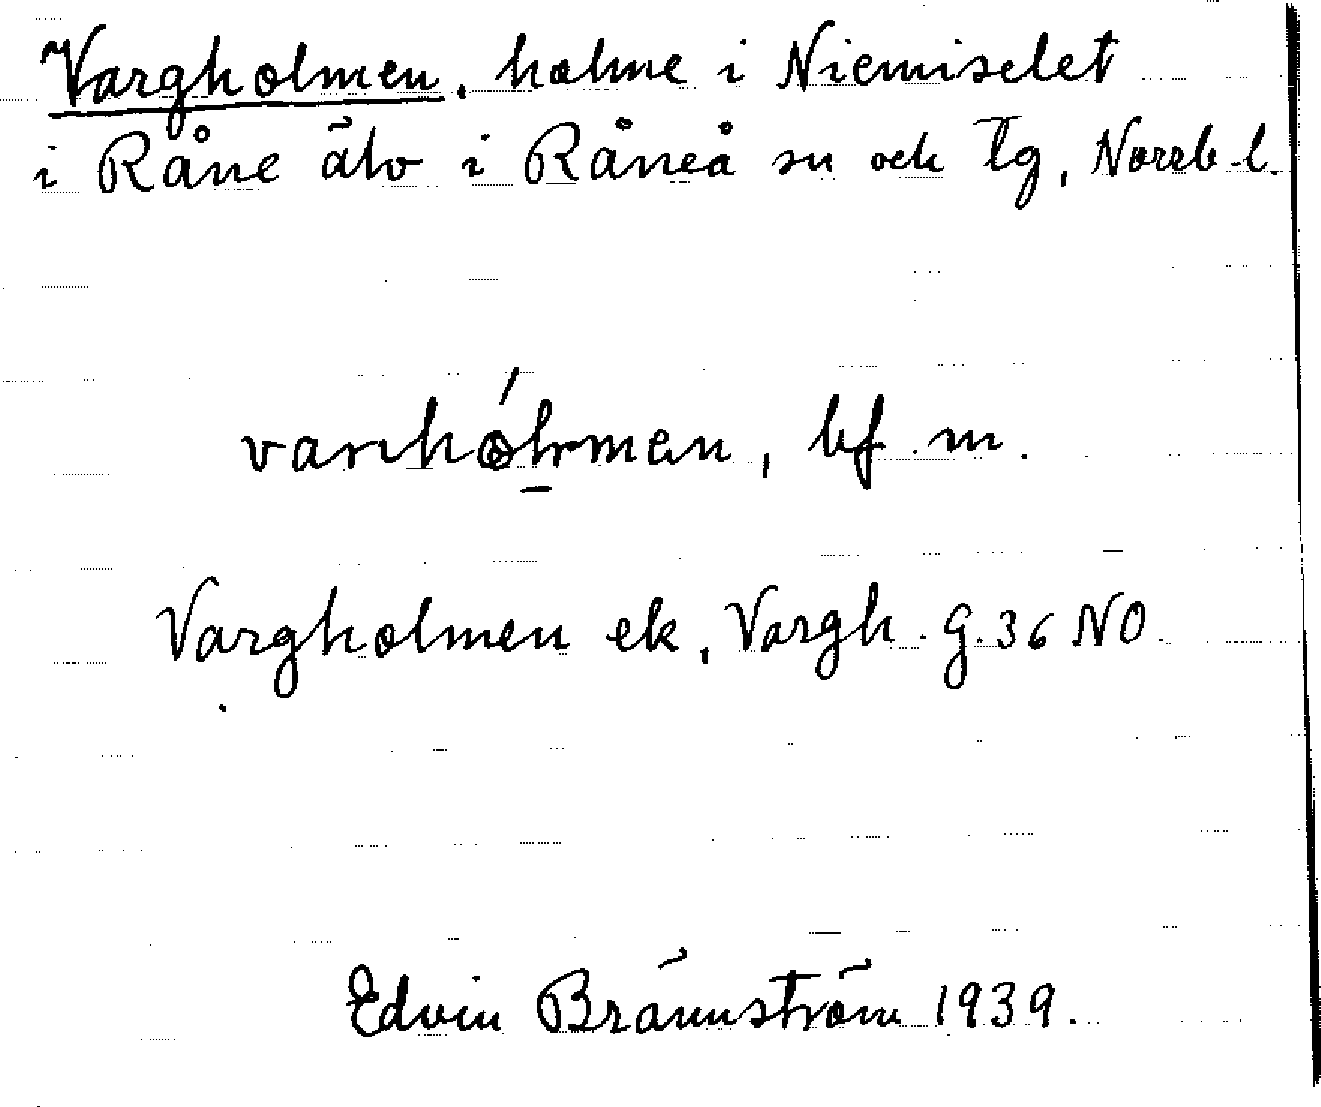 Vargholmen, holme i Niemiselet
i Råne älv i Råneå sn och tg, Norrb. l.
bf. m.
Vargholmen ek, Vargh. G. 36 NO
Edvin Brännström 1939.